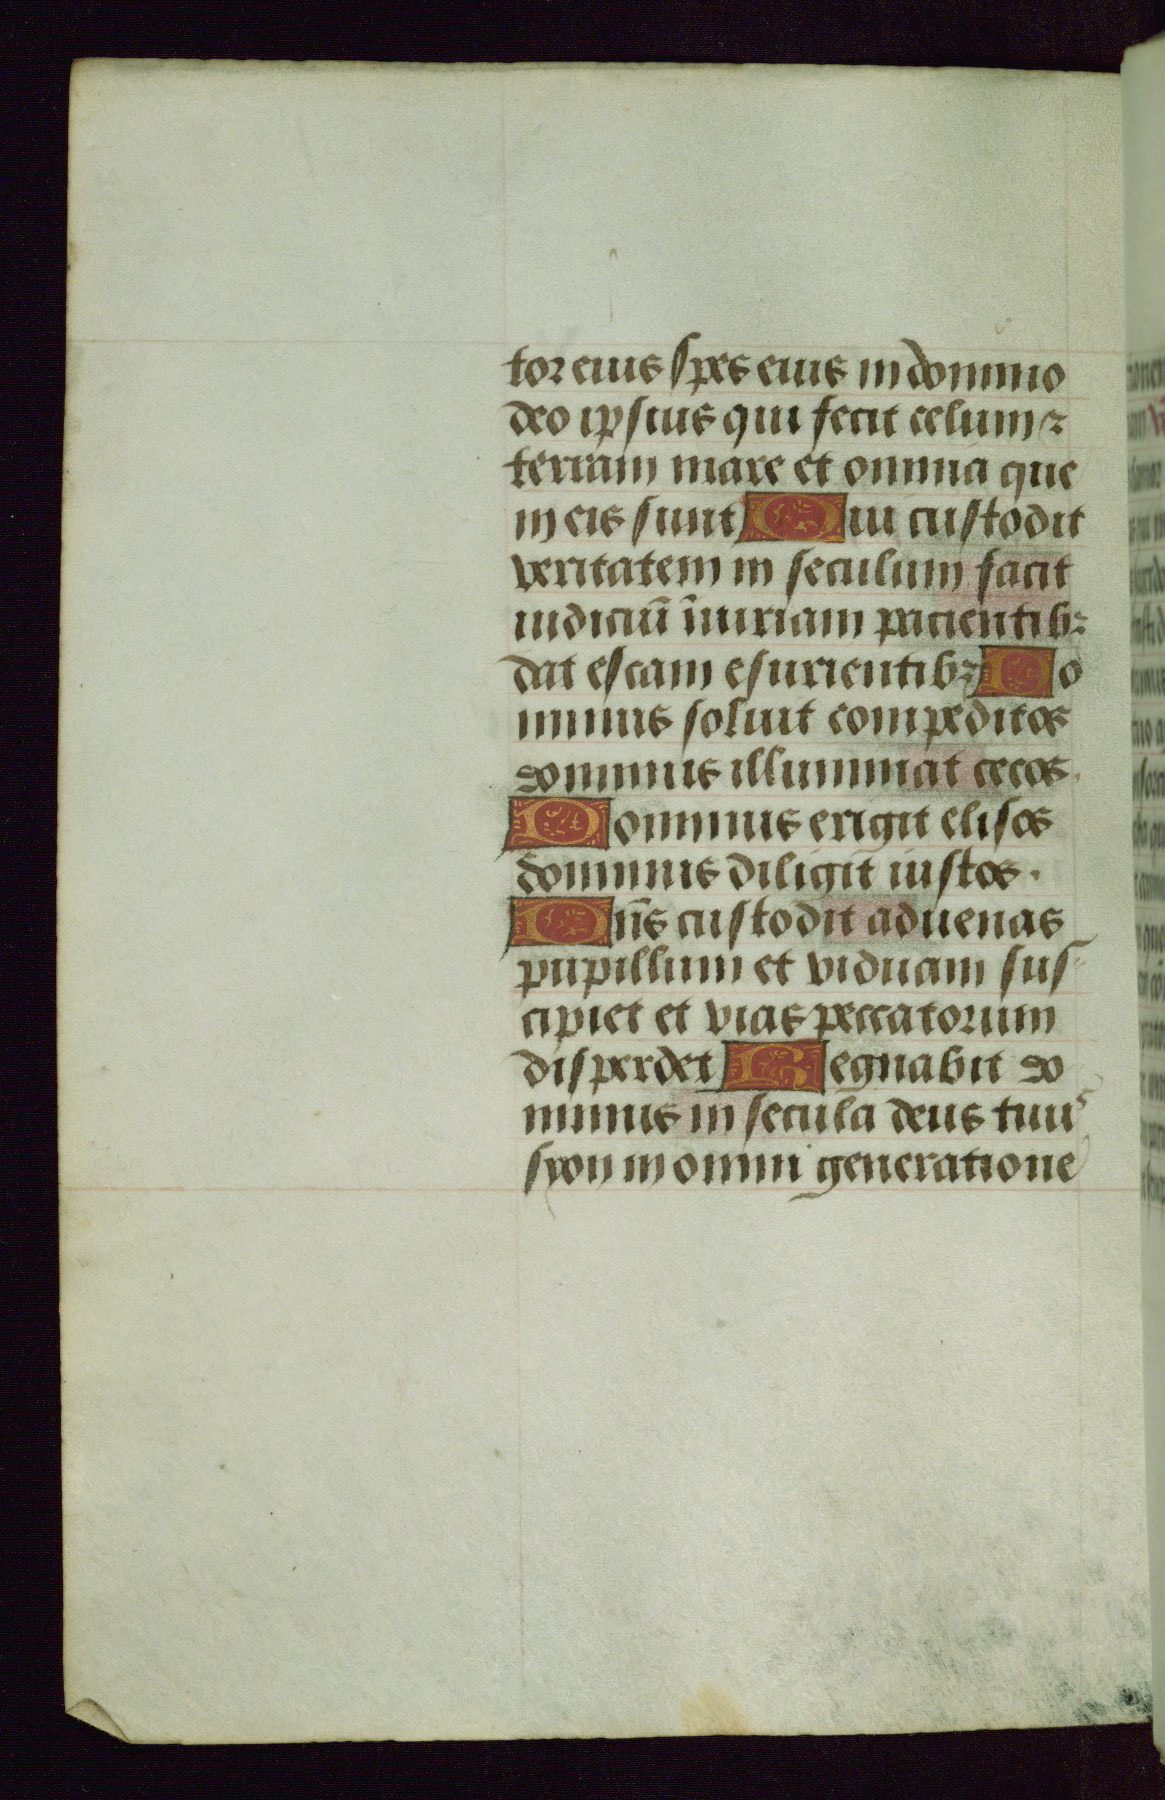 tor eius spes eius in domino
deo ipsius qui fecit celum ⁊
terram mare et omnia que
in eis sunt Qui custodit
veritatem in seculum facit
iudiciū iniuriam pacientibꝫ
dat escam esurientibꝫ Do
minus soluit compeditos
dominus illuminat cecos.
Dominus erigit elisos
dominus diligit iustos.
Dn̄s custodit aduenas
pupillum et viduam sus
cipiet et vias peccatorum
disperdet Regnabit do
minus in secula deus tuus
syon in omni generatione